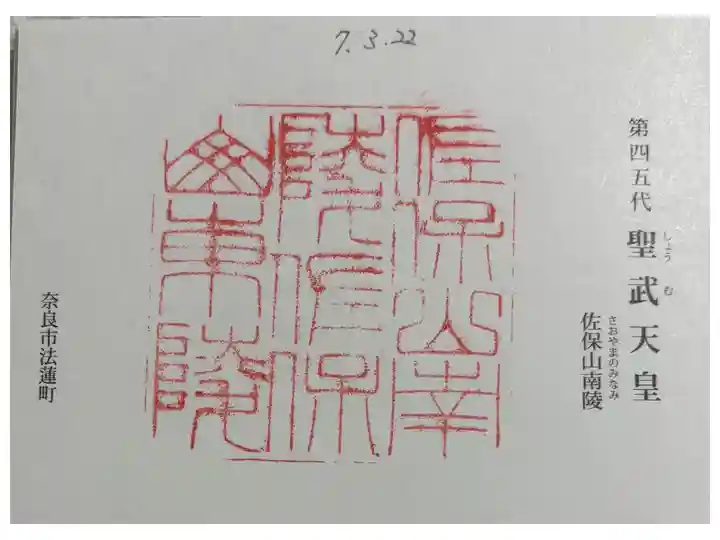 7.3.22
第四五代 聖武天皇
しょうむ
さおやまのみなみ
佐保山南陵
佐保山南
陵佐保
山東陵
奈良市法蓮町